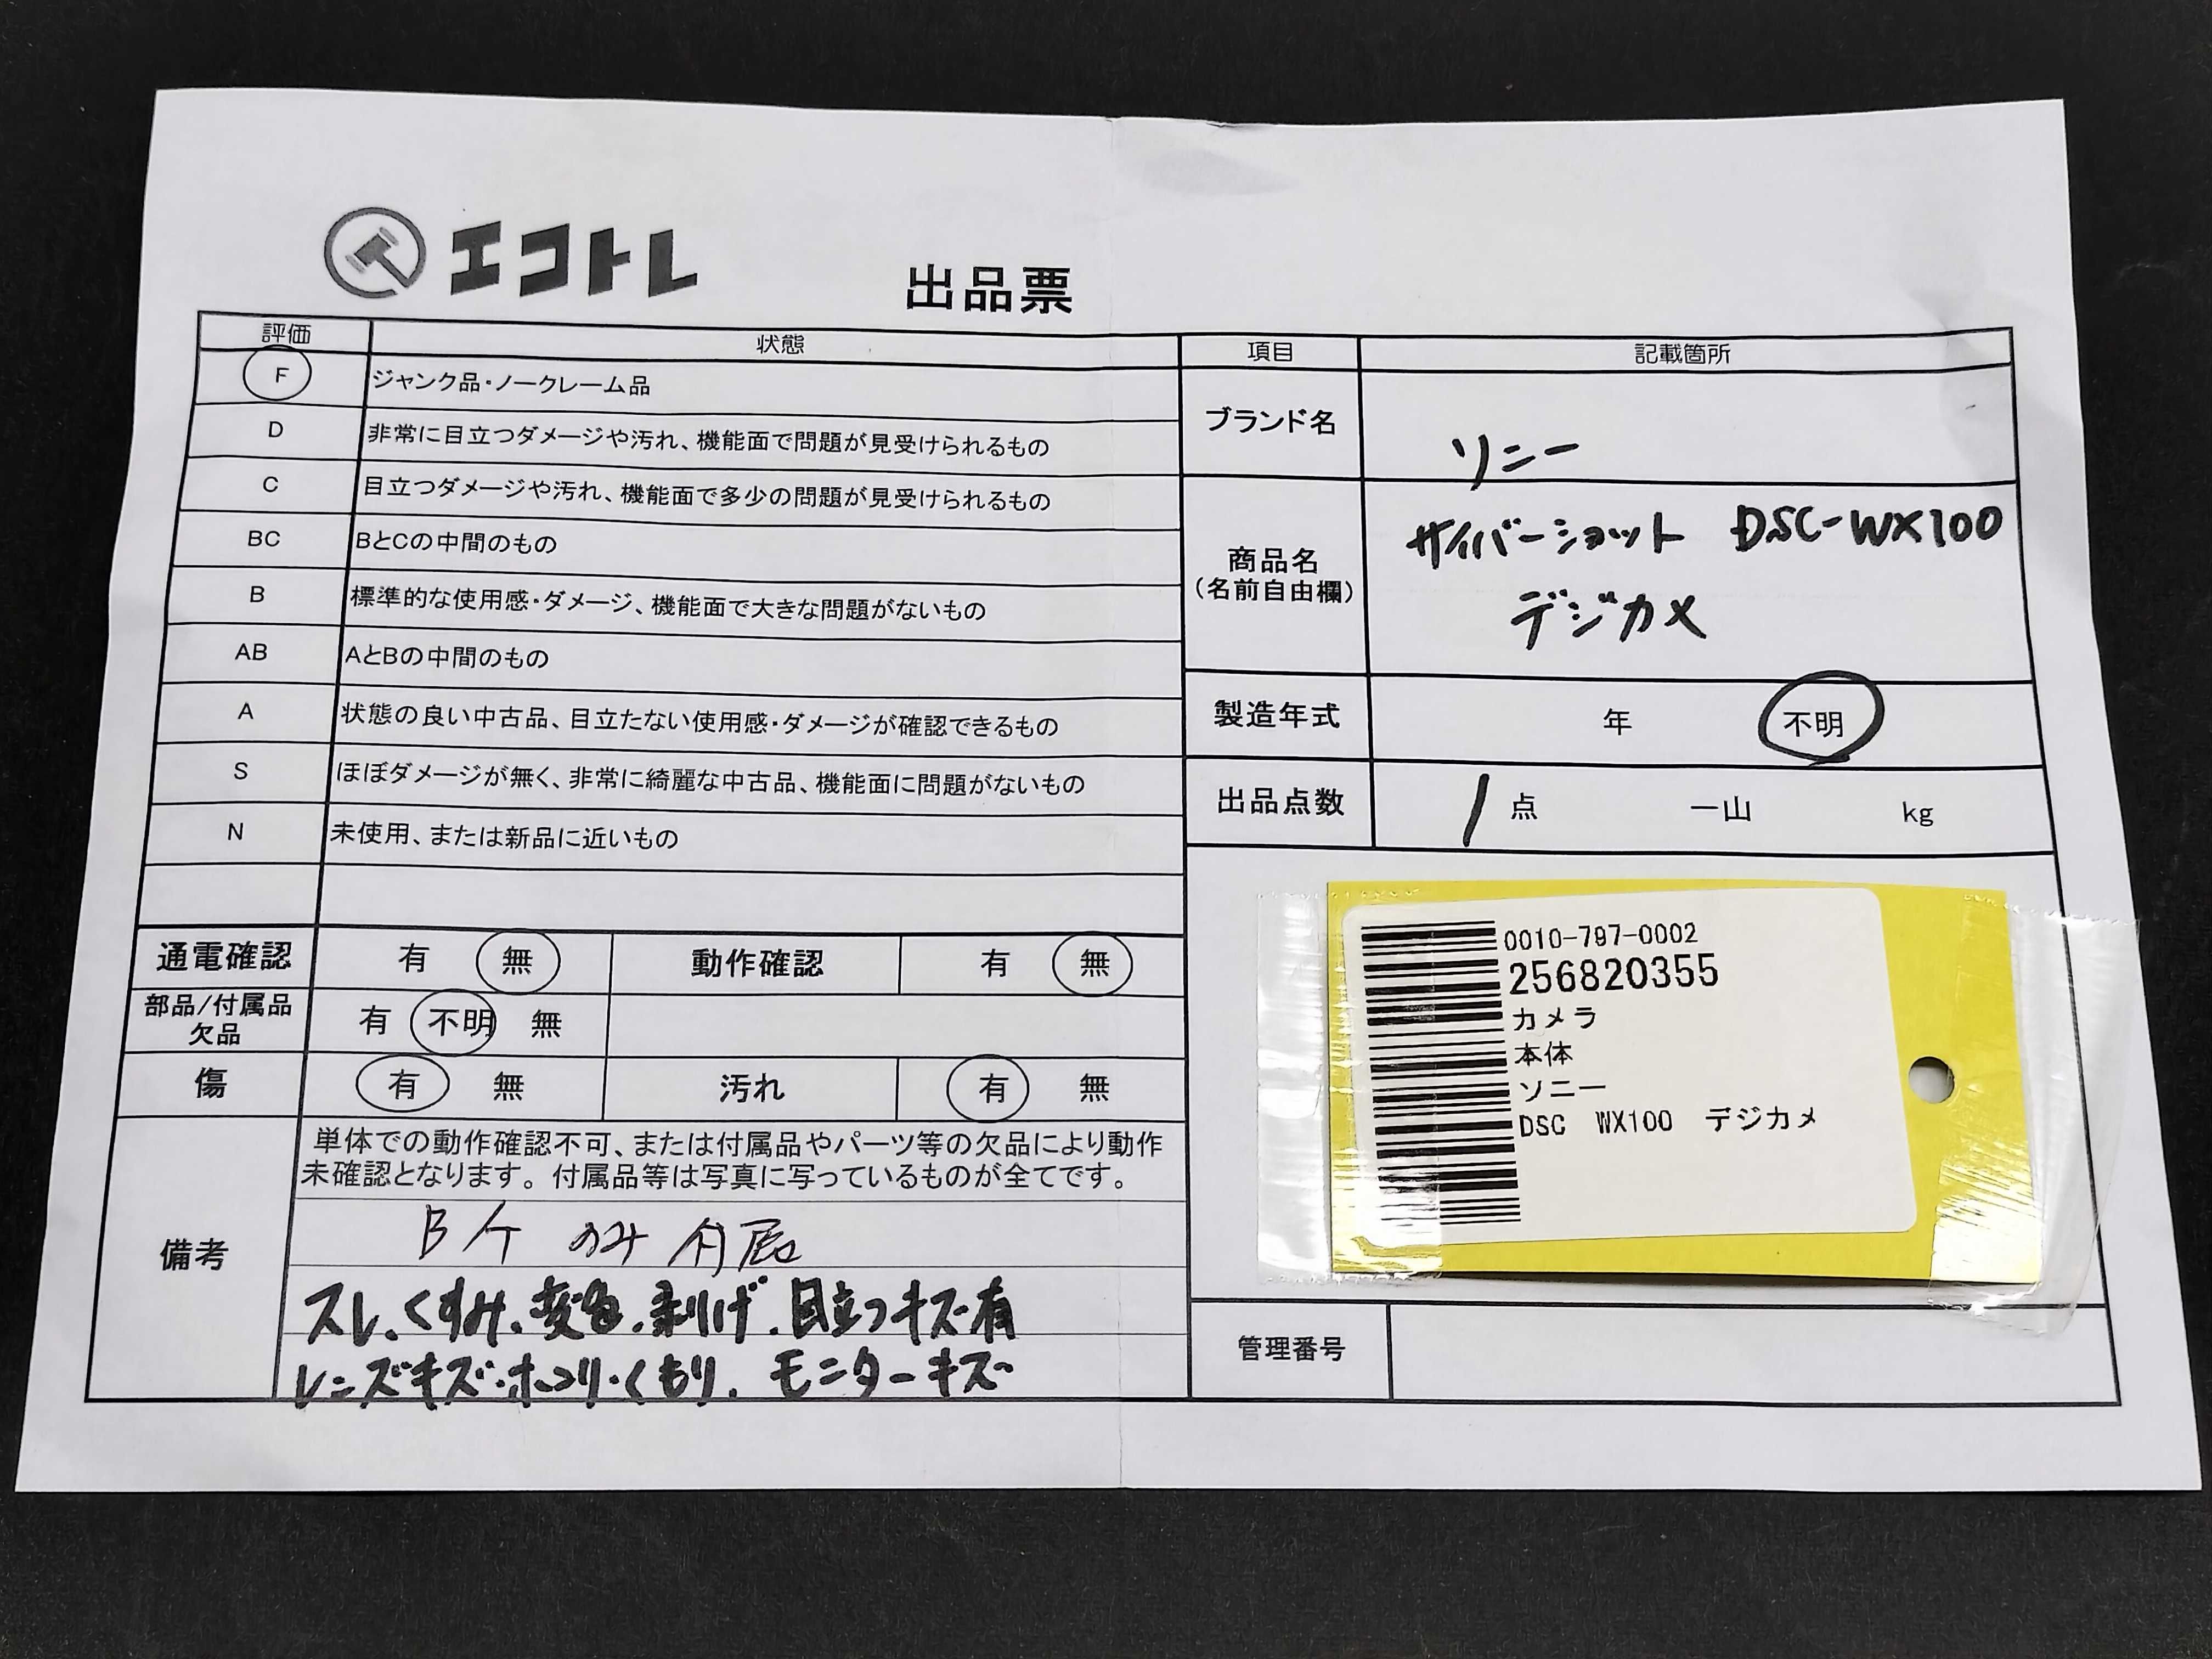 エコトレ
出品票
評価 状態
F ジャンク品・ノークレーム品
D 非常に目立つダメージや汚れ、機能面で問題が見受けられるもの
C 目立つダメージや汚れ、機能面で多少の問題が見受けられるもの
BC BとCの中間のもの
B 標準的な使用感・ダメージ、機能面で大きな問題がないもの
AB AとBの中間のもの
A 状態の良い中古品、目立たない使用感・ダメージが確認できるもの
S ほぼダメージが無く、非常に綺麗な中古品、機能面に問題がないもの
N 未使用、または新品に近いもの
通電確認 有 無 動作確認 有 無
部品/付属品
欠品
有 不明 無
傷 有 無 汚れ 有 無
備考
単体での動作確認不可、または付属品やパーツ等の欠品により動作
未確認となります。付属品等は写真に写っているものが全てです。
Bケ のみ 付属
スレ、くすみ、変色、剥げ、目立つキズ有
レンズキズ・ホコリ・くもり、モニターキズ
項目 記載箇所
ブランド名 ソニー
商品名
(名前自由欄)
サイバーショット DSC-WX100
デジカメ
製造年式 年 不明
出品点数 1 点 一山 kg
0010-797-0002
256820355
カメラ
本体
ソニー
DSC WX100 デジカメ
管理番号